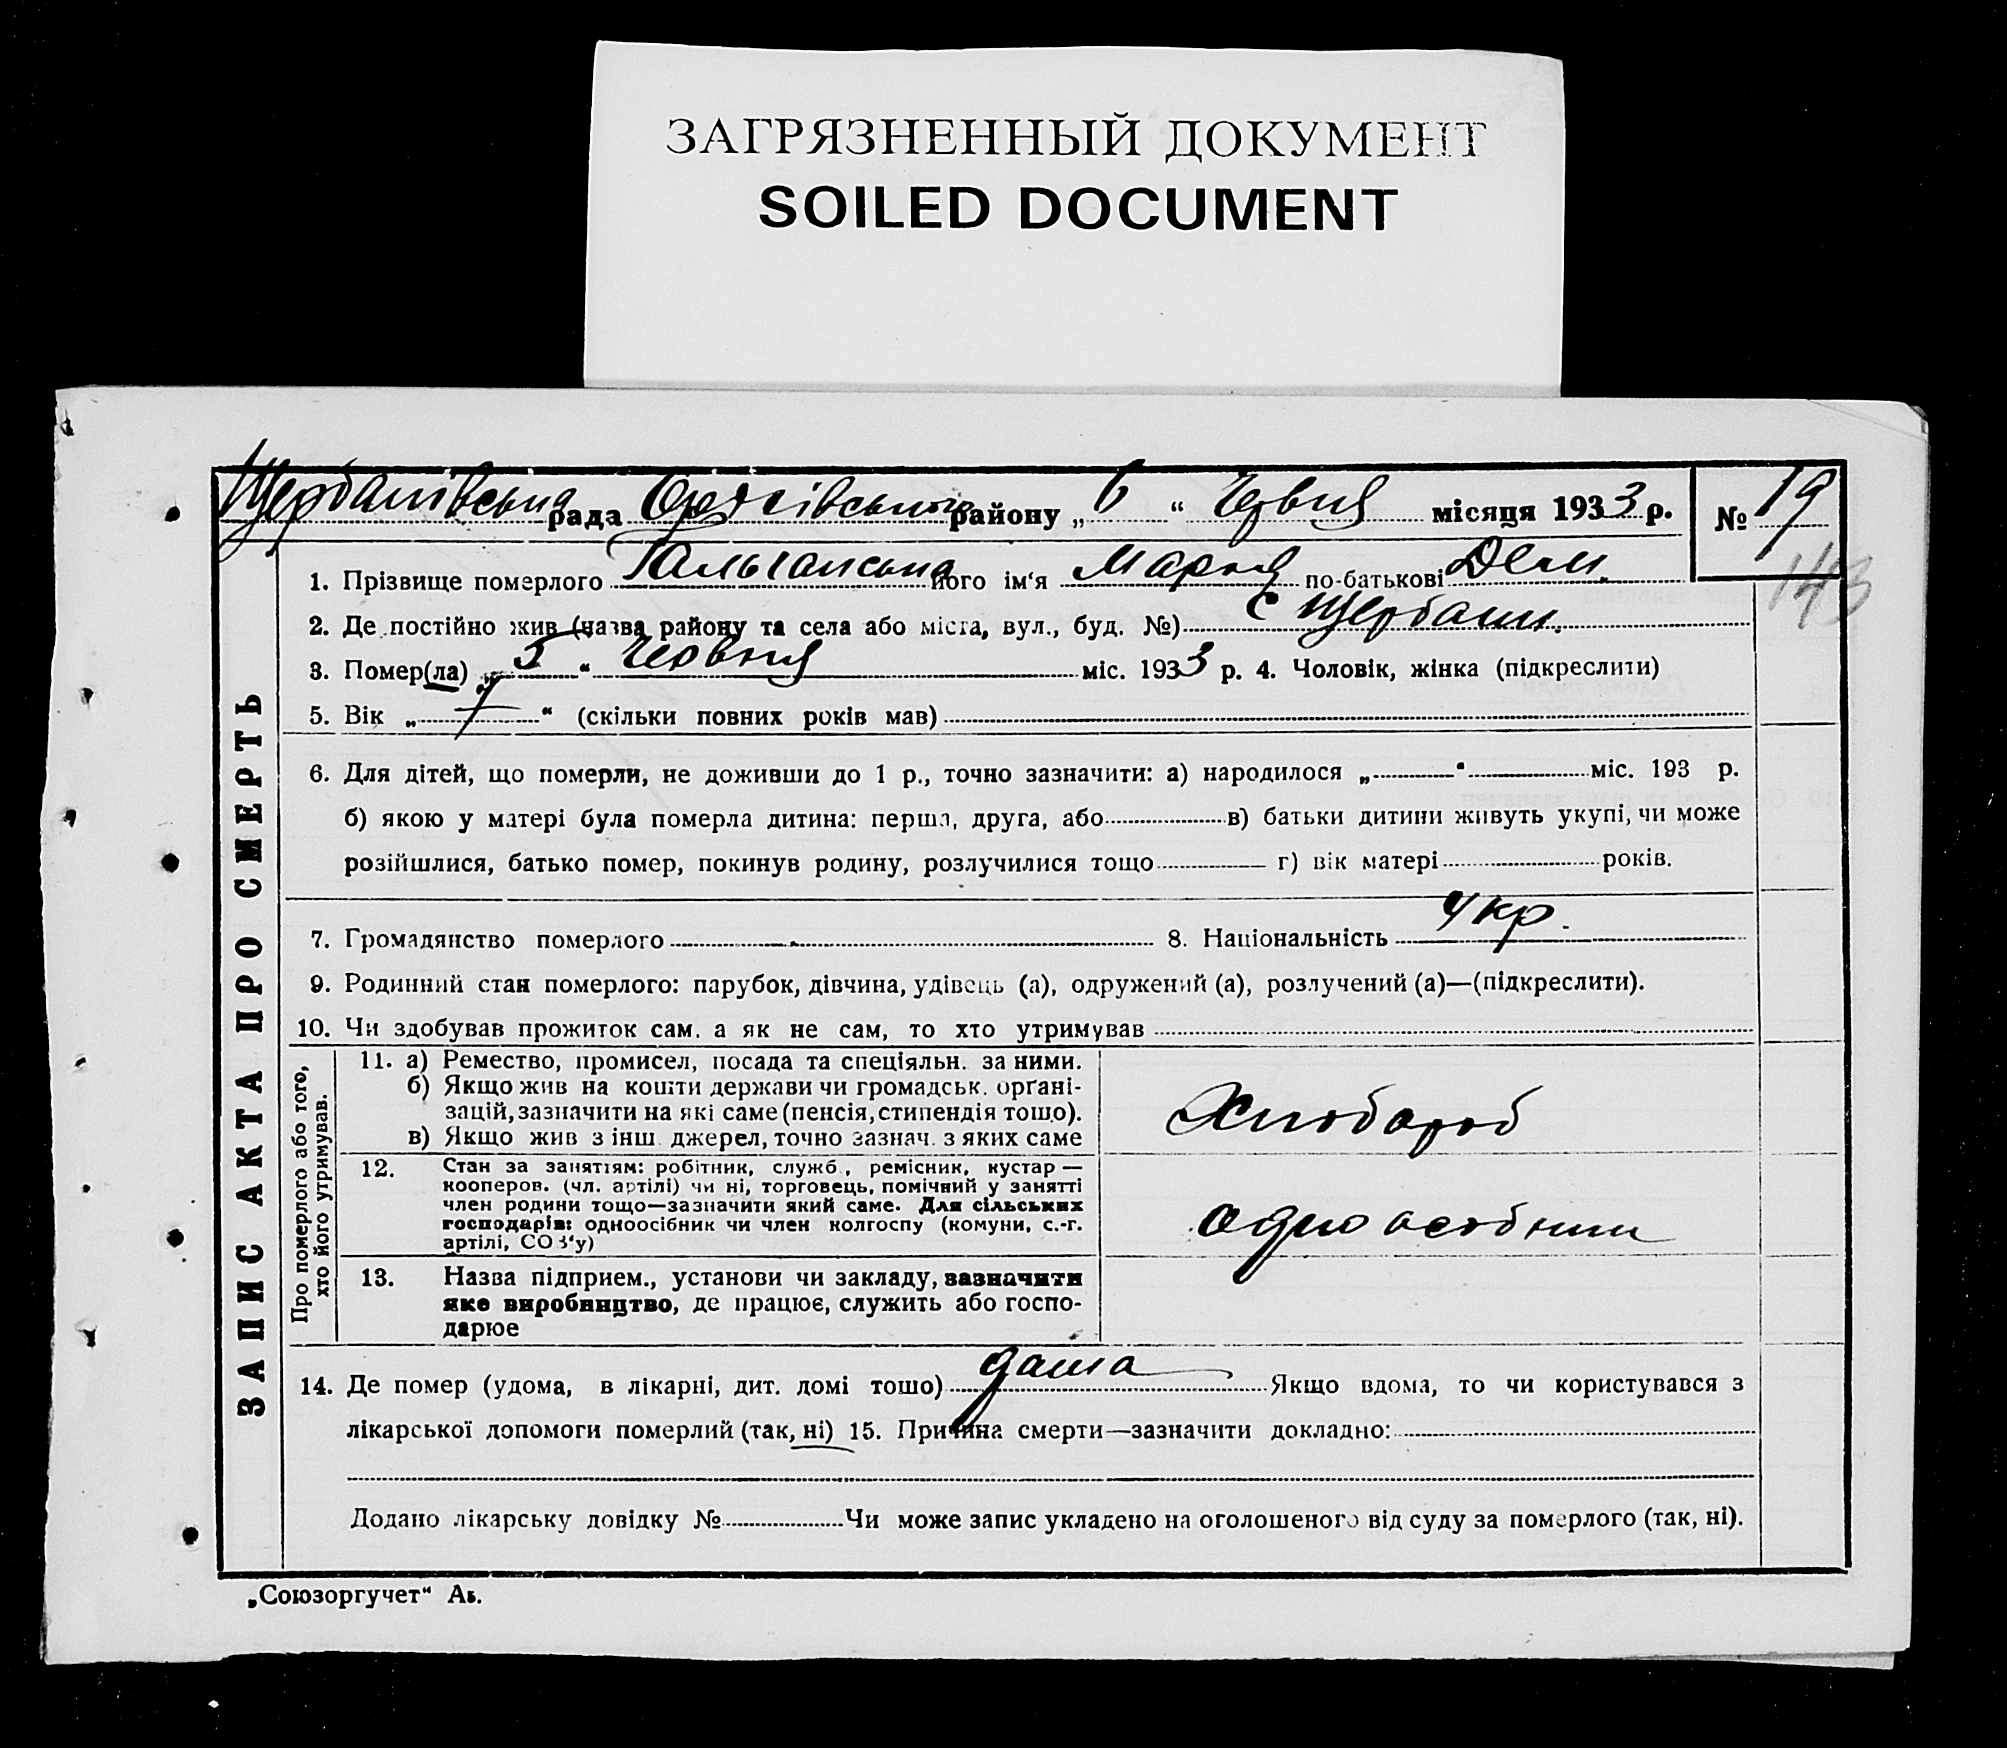 ЗАГРЯЗНЕННЫЙ ДОКУМЕНТ
SOILED DOCUMENT
Щербанівська рада району „ 6 “ Червня місяця 1933 р. № 19
143
ЗАПИС АКТА ПРО СМЕРТЬ
1. Прізвище померлого його ім‘я Мария по-батькові Дем.
2. Де постійно жив (назва району та села або міста, вул., буд. №) С Щербани.
3. Помер(ла) „ 5 “ Червня міс. 1933 р. 4. Чоловік, жінка (підкреслити)
5. Вік „ 7 “ (скільки повних років мав)
6. Для дітей, що померли, не доживши до 1 р., точно зазначити: а) народилося „ “ міс. 193 р.
б) якою у матері була померла дитина: перша, друга, або в) батьки дитини живуть укупі, чи може
розійшлися, батько помер, покинув родину, розлучилися тощо г) вік матері років.
7. Громадянство померлого 8. Національність Укр.
9. Родинний стан померлого: парубок, дівчина, удівець (а), одружений (а), розлучений (а)—(підкреслити).
10. Чи здобував прожиток сам. а як не сам, то хто утримував
Про померлого або того,
хто його утримував.
11. а) Ремество, промисел, посада та спеціяльн. за ними.
б) Якщо жив на кошти держави чи громадськ. орґані-
зацій, зазначити на які саме (пенсія, стипендія тощо).
в) Якщо жив з інш. джерел, точно зазнач. з яких саме
Хлібороб
12. Стан за заняттям: робітник, служб., ремісник, кустар —
кооперов. (чл. артілі) чи ні, торговець, помічний у занятті
член родини тощо—зазначити який саме. Для сільських
господарів: одноосібник чи член колгоспу (комуни, с.-г.
артілі, СОЗ‘у)
одноосібник
13. Назва підприєм., установи чи закладу, зазначити
яке виробництво, де працює, служить або госпо-
дарює
14. Де помер (удома, в лікарні, дит. домі тощо) дома Якщо вдома, то чи користувався з
лікарської допомоги померлий (так, ні) 15. Причина смерти—зазначити докладно:
Додано лікарську довідку № Чи може запис укладено на оголошеного від суду за померлого (так, ні).
„Союзоргучет“ Ав.